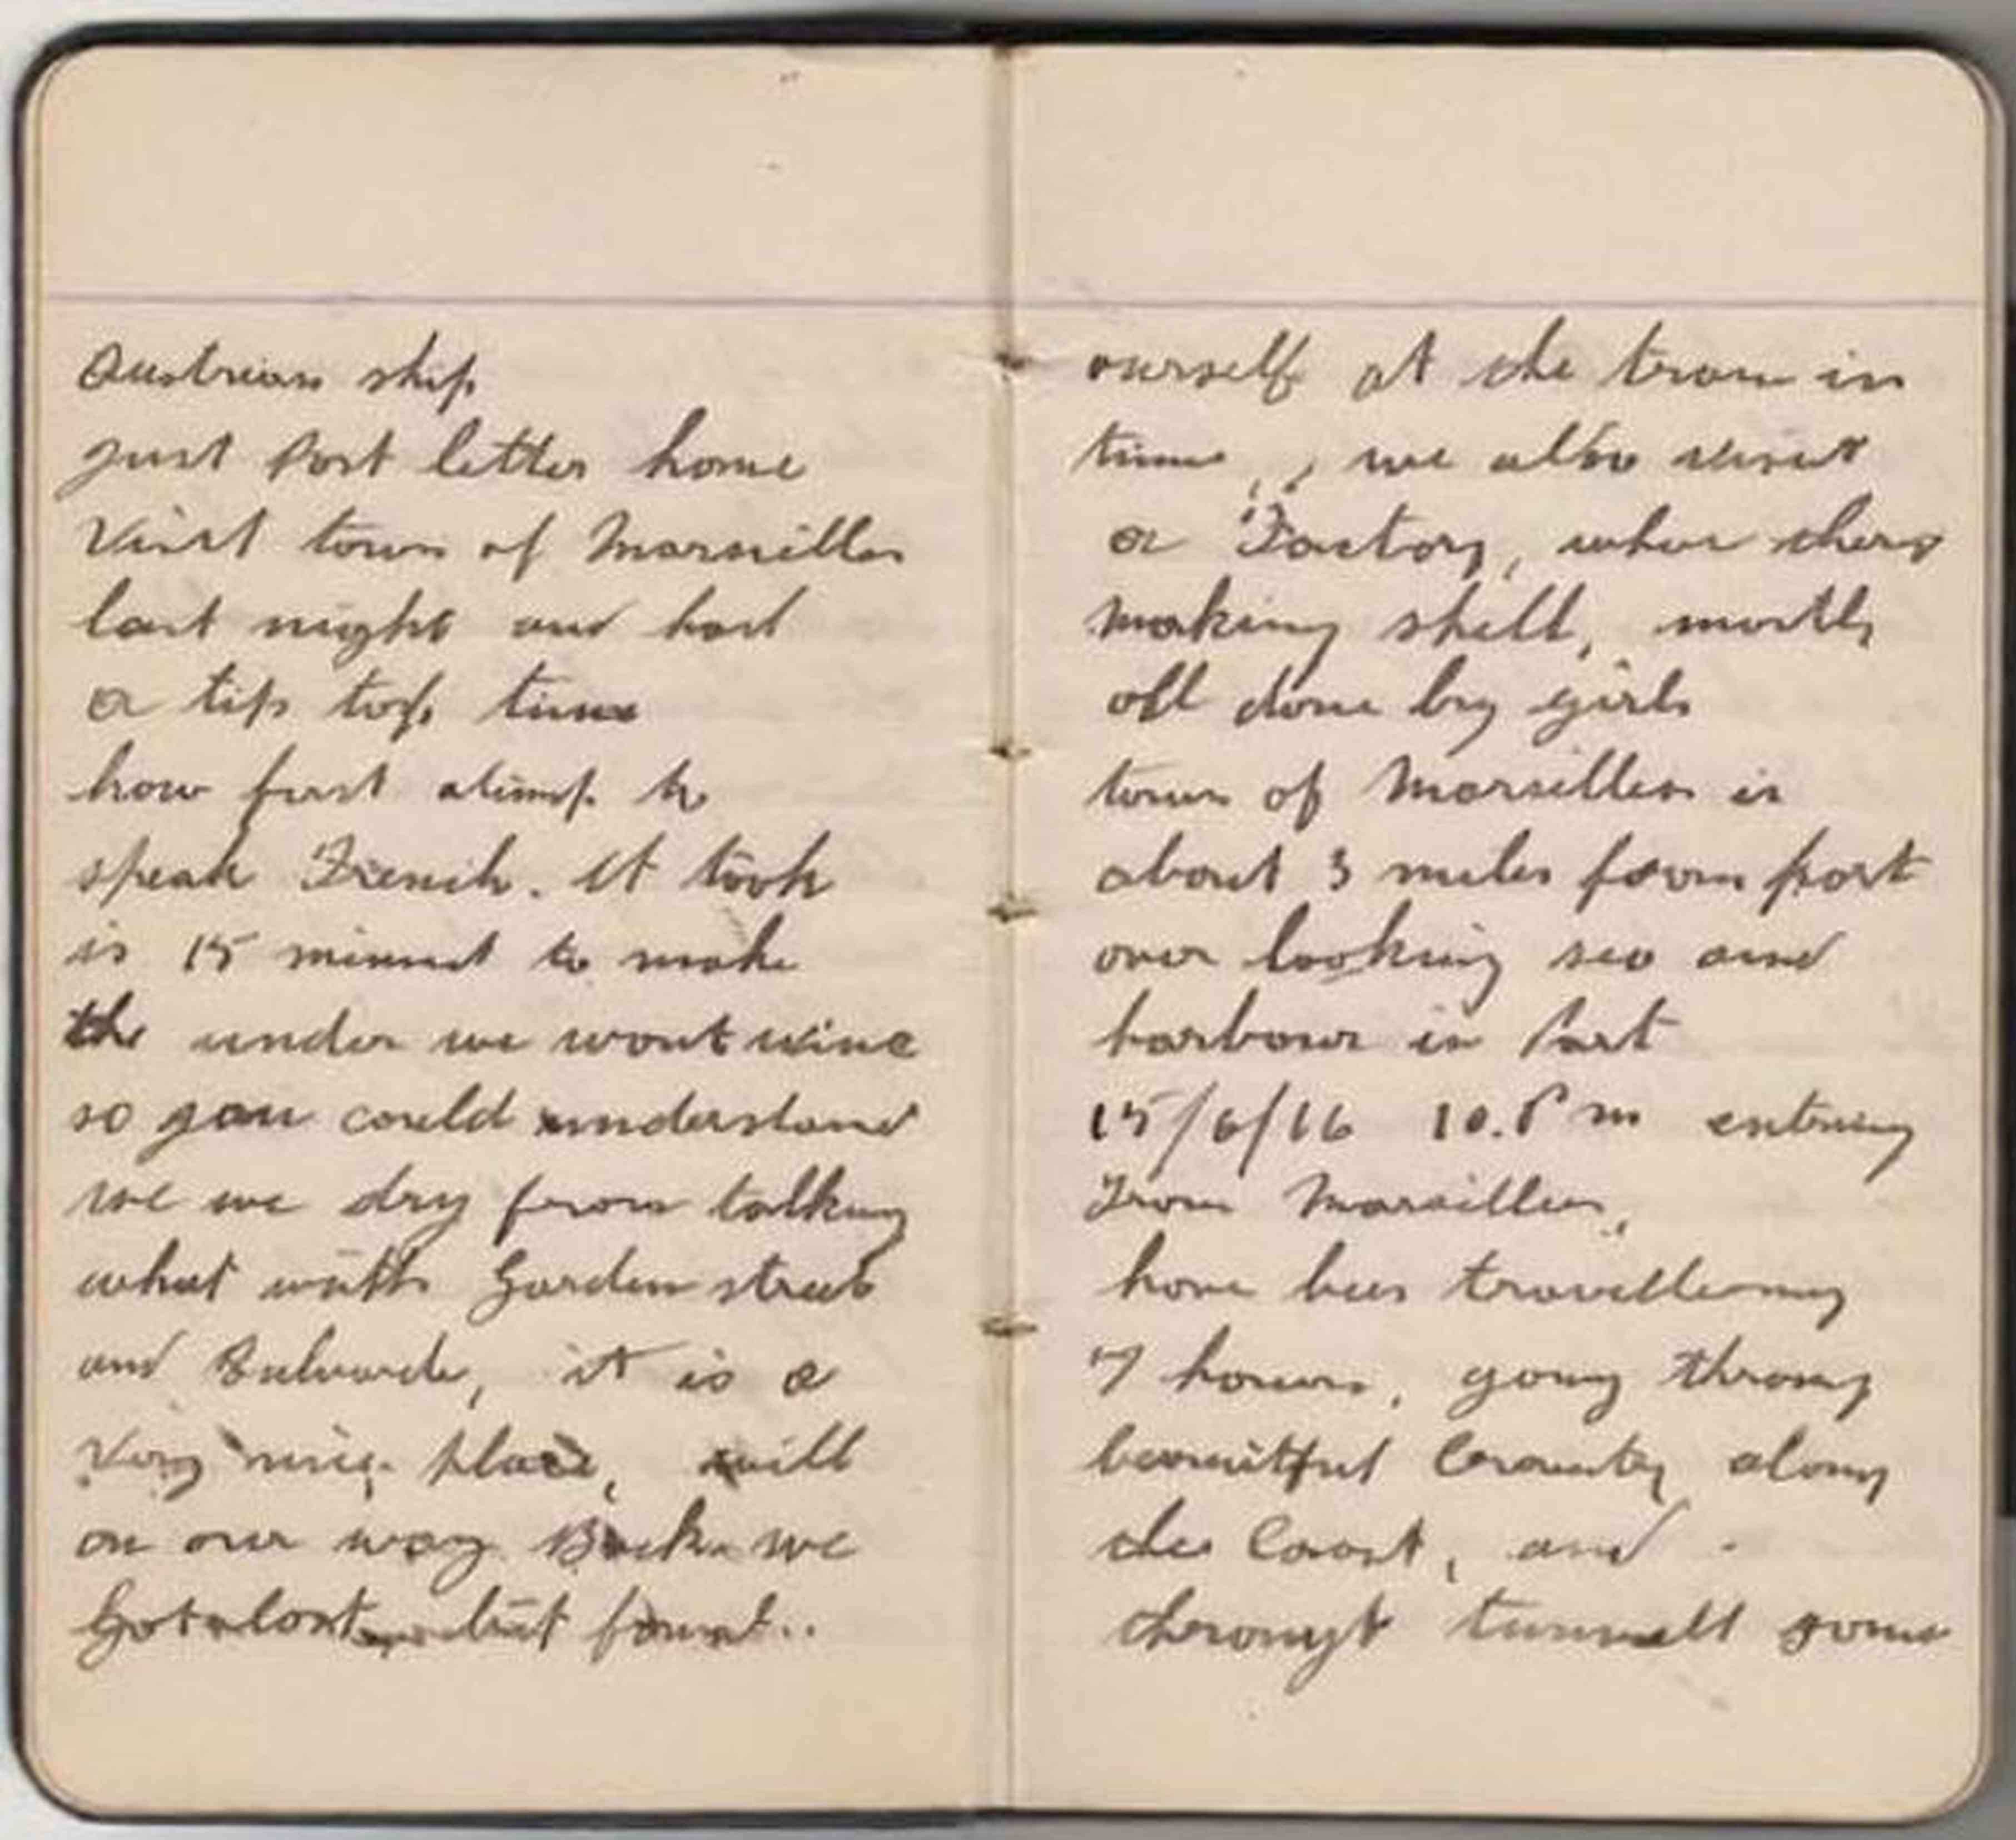 Austrian ship
just Post letter home
Visit town of Marseilles
last night and had
a tip top time
how first atimp to
speak French. it took
is 15 minnut to make
the under we wont wine
so you could understand
we we dry from talking
what with Garden street
and Bulvards, it is a
Very nice place, will
on our way Back we
Got lost but found..
ourself at the tram in
time, we also visit
a Factory, wher thers
making shell, mostly
all done by girls
town of Marseilles is
about 3 miles from port
over looking sea and
harbour in Port
15/6/16 10.Pm entring
From Marseilles,
have been travelleing
7 hours, going throug
beauitful Country along
the Coast, and
througt tunnell some